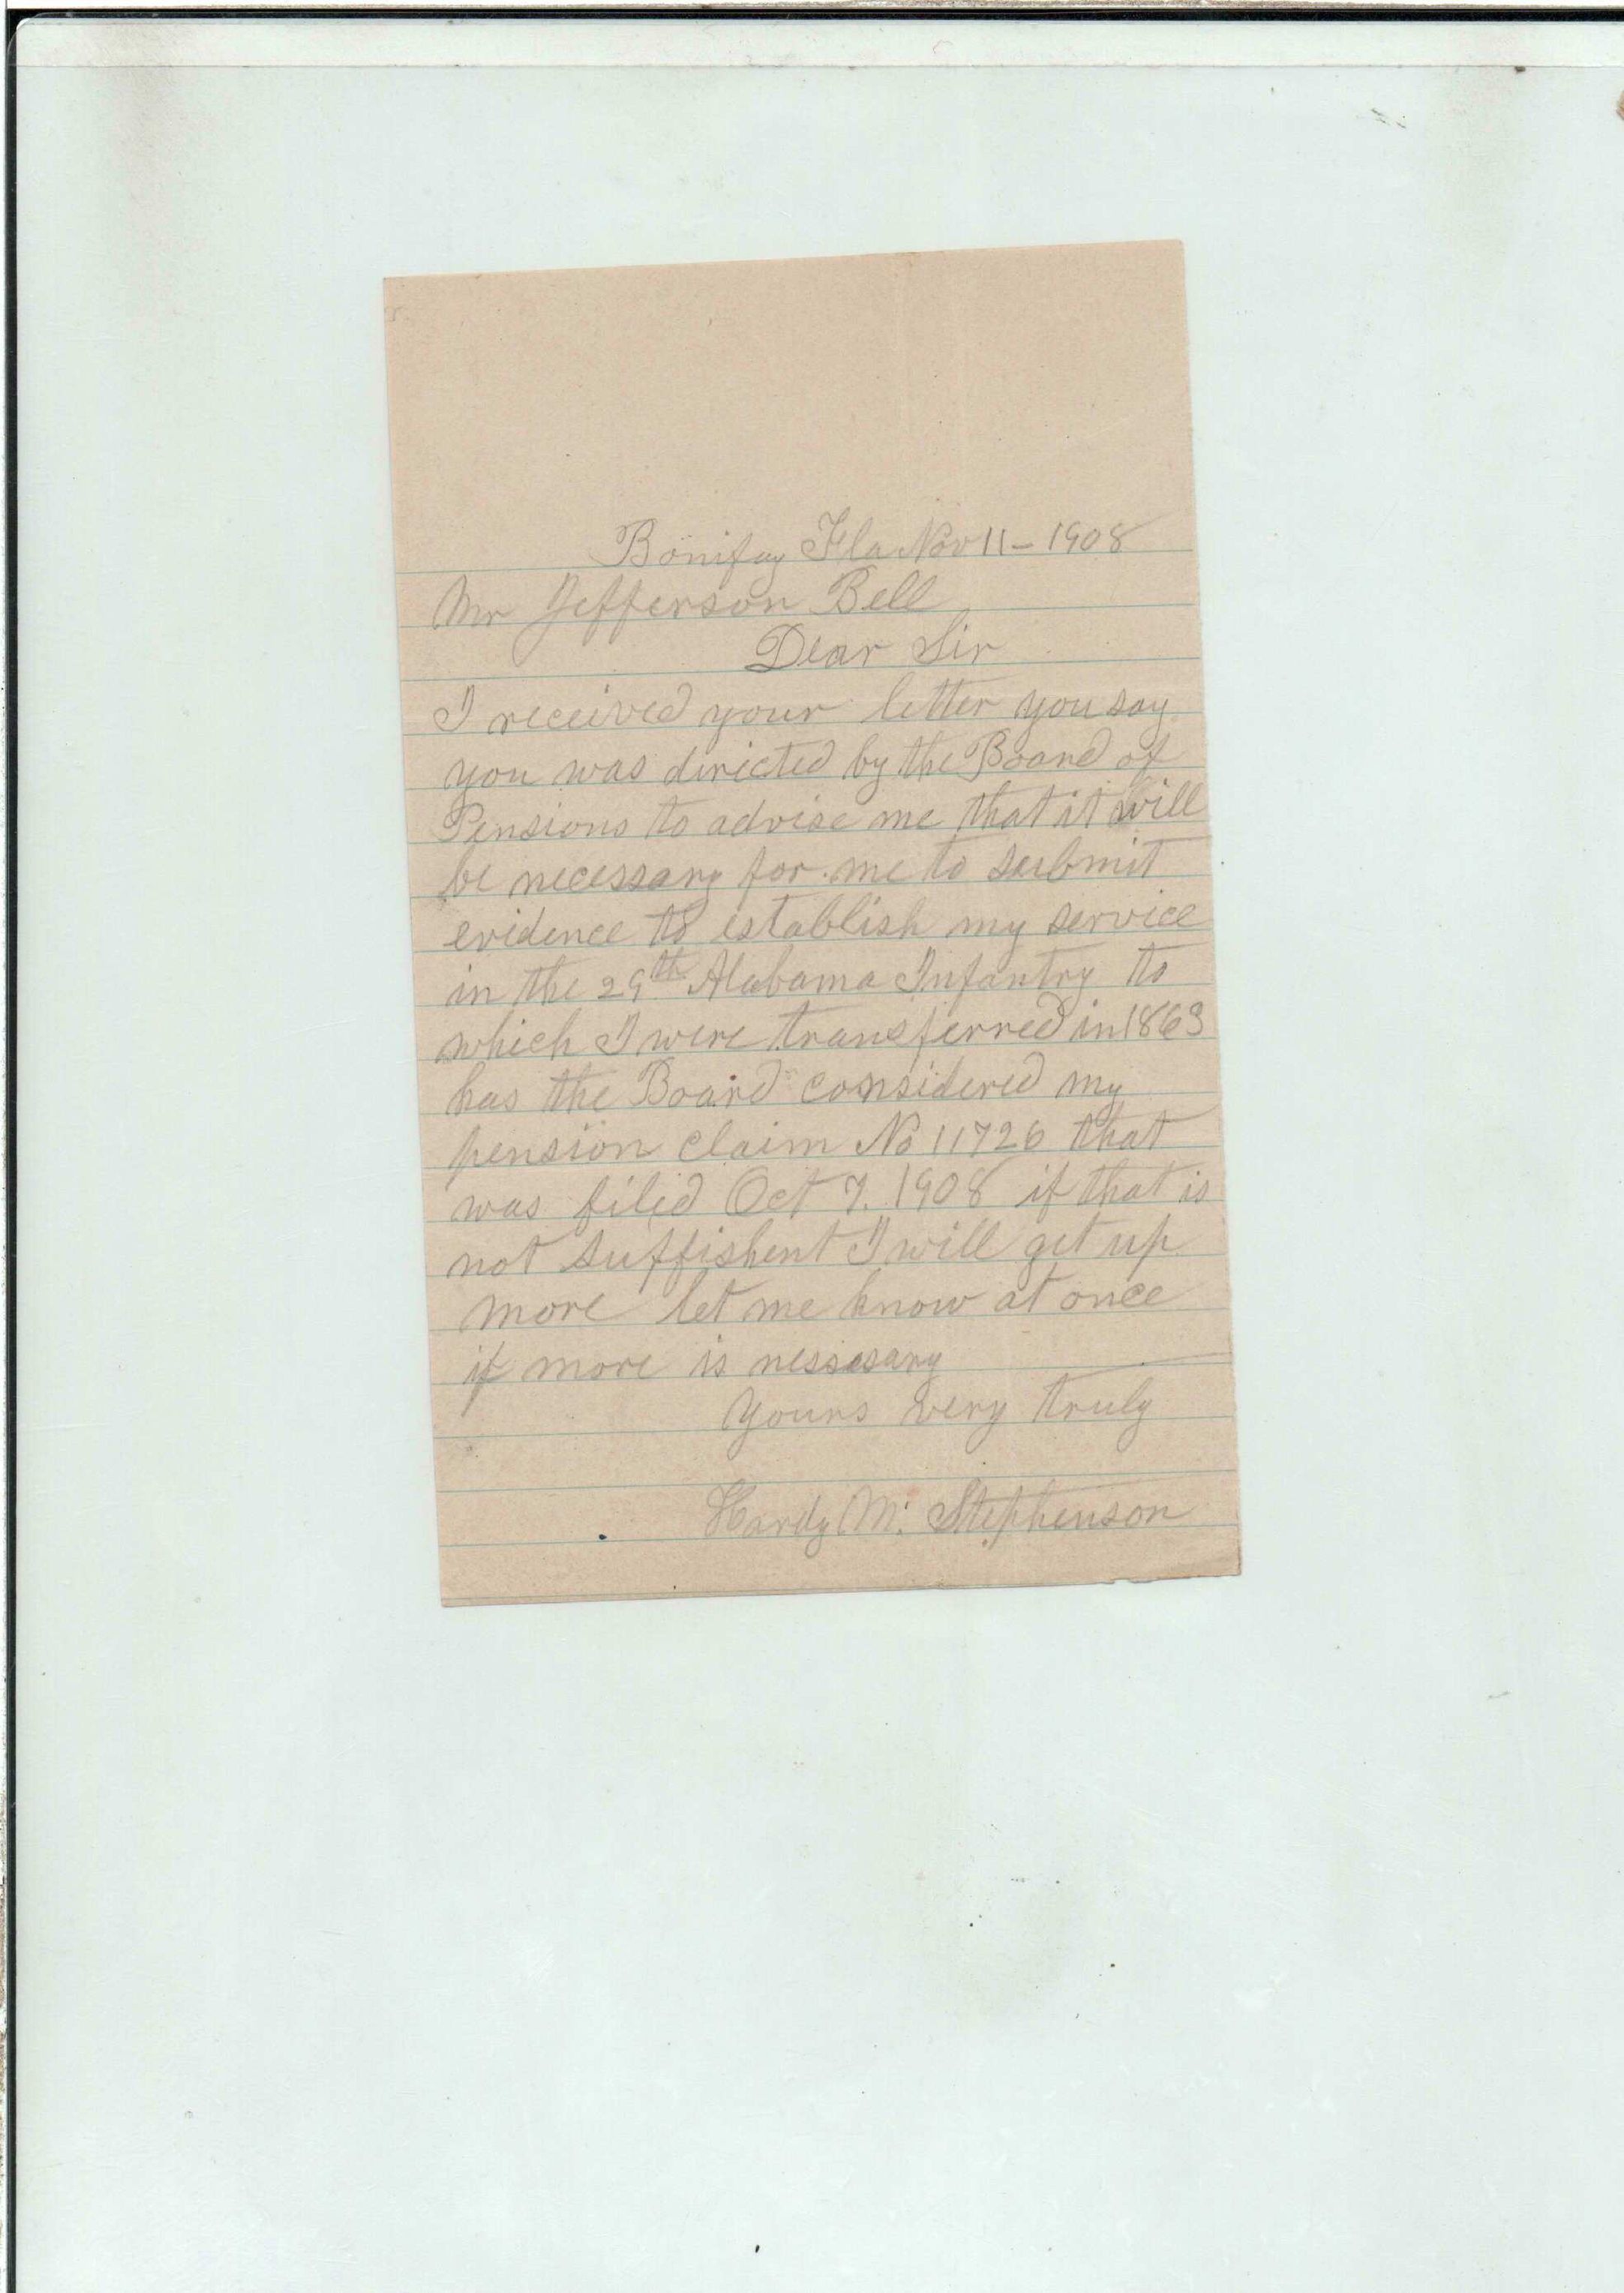 Bonifay Fla Nov 11 - 1908
Mr Jefferson Bell
Dear Sir
I received your letter you say
you was directed by the Board of
Pensions to advise me that it will
be necessary for me to submit
evidence to establish my service
in the 29th Alabama Infantry to
which I were transferred in 1863
has the Board considered my
pension claim No 11726 that
was filed Oct 7. 1908 if that is
not suffishent I will get up
more let me know at once
if more is nessesary
Yours very truly
Hardy M. Stephenson